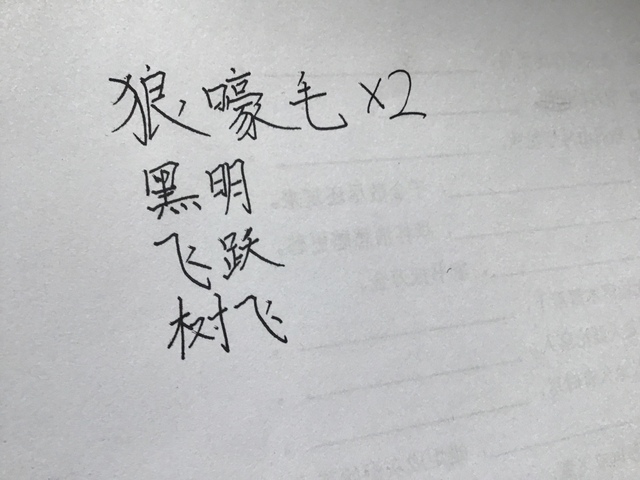 狼，嚎毛×2
黑明
飞跃
树飞